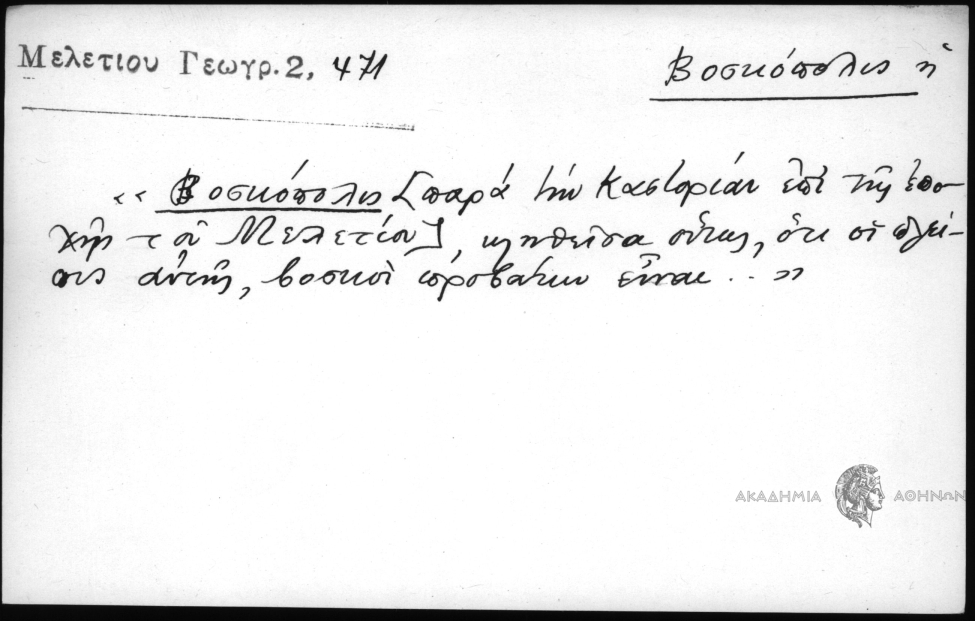 Μελετιου Γεωγρ. 2, 471
Βοσκόπολις ἡ
«Βοσκόπολις [παρά τήν Καστορίαν ἐπί τῆς ἐπο-
χῆς τοῦ Μελετίου], κληθεῖσα οὕτως, ὅτι οἱ πλεῖ-
στοι αὐτῆς, βοσκοί προβάτων εἶναι . . »
ΑΚΑΔΗΜΙΑ ΑΘΗΝΩΝ